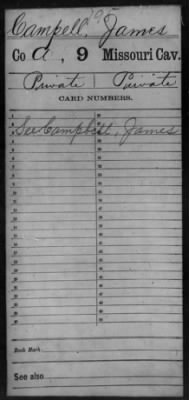 Campell, James
Co A, 9 Missouri Cav.
Private | Private
CARD NUMBERS.
See Campbell, James
Book Mark:
See also